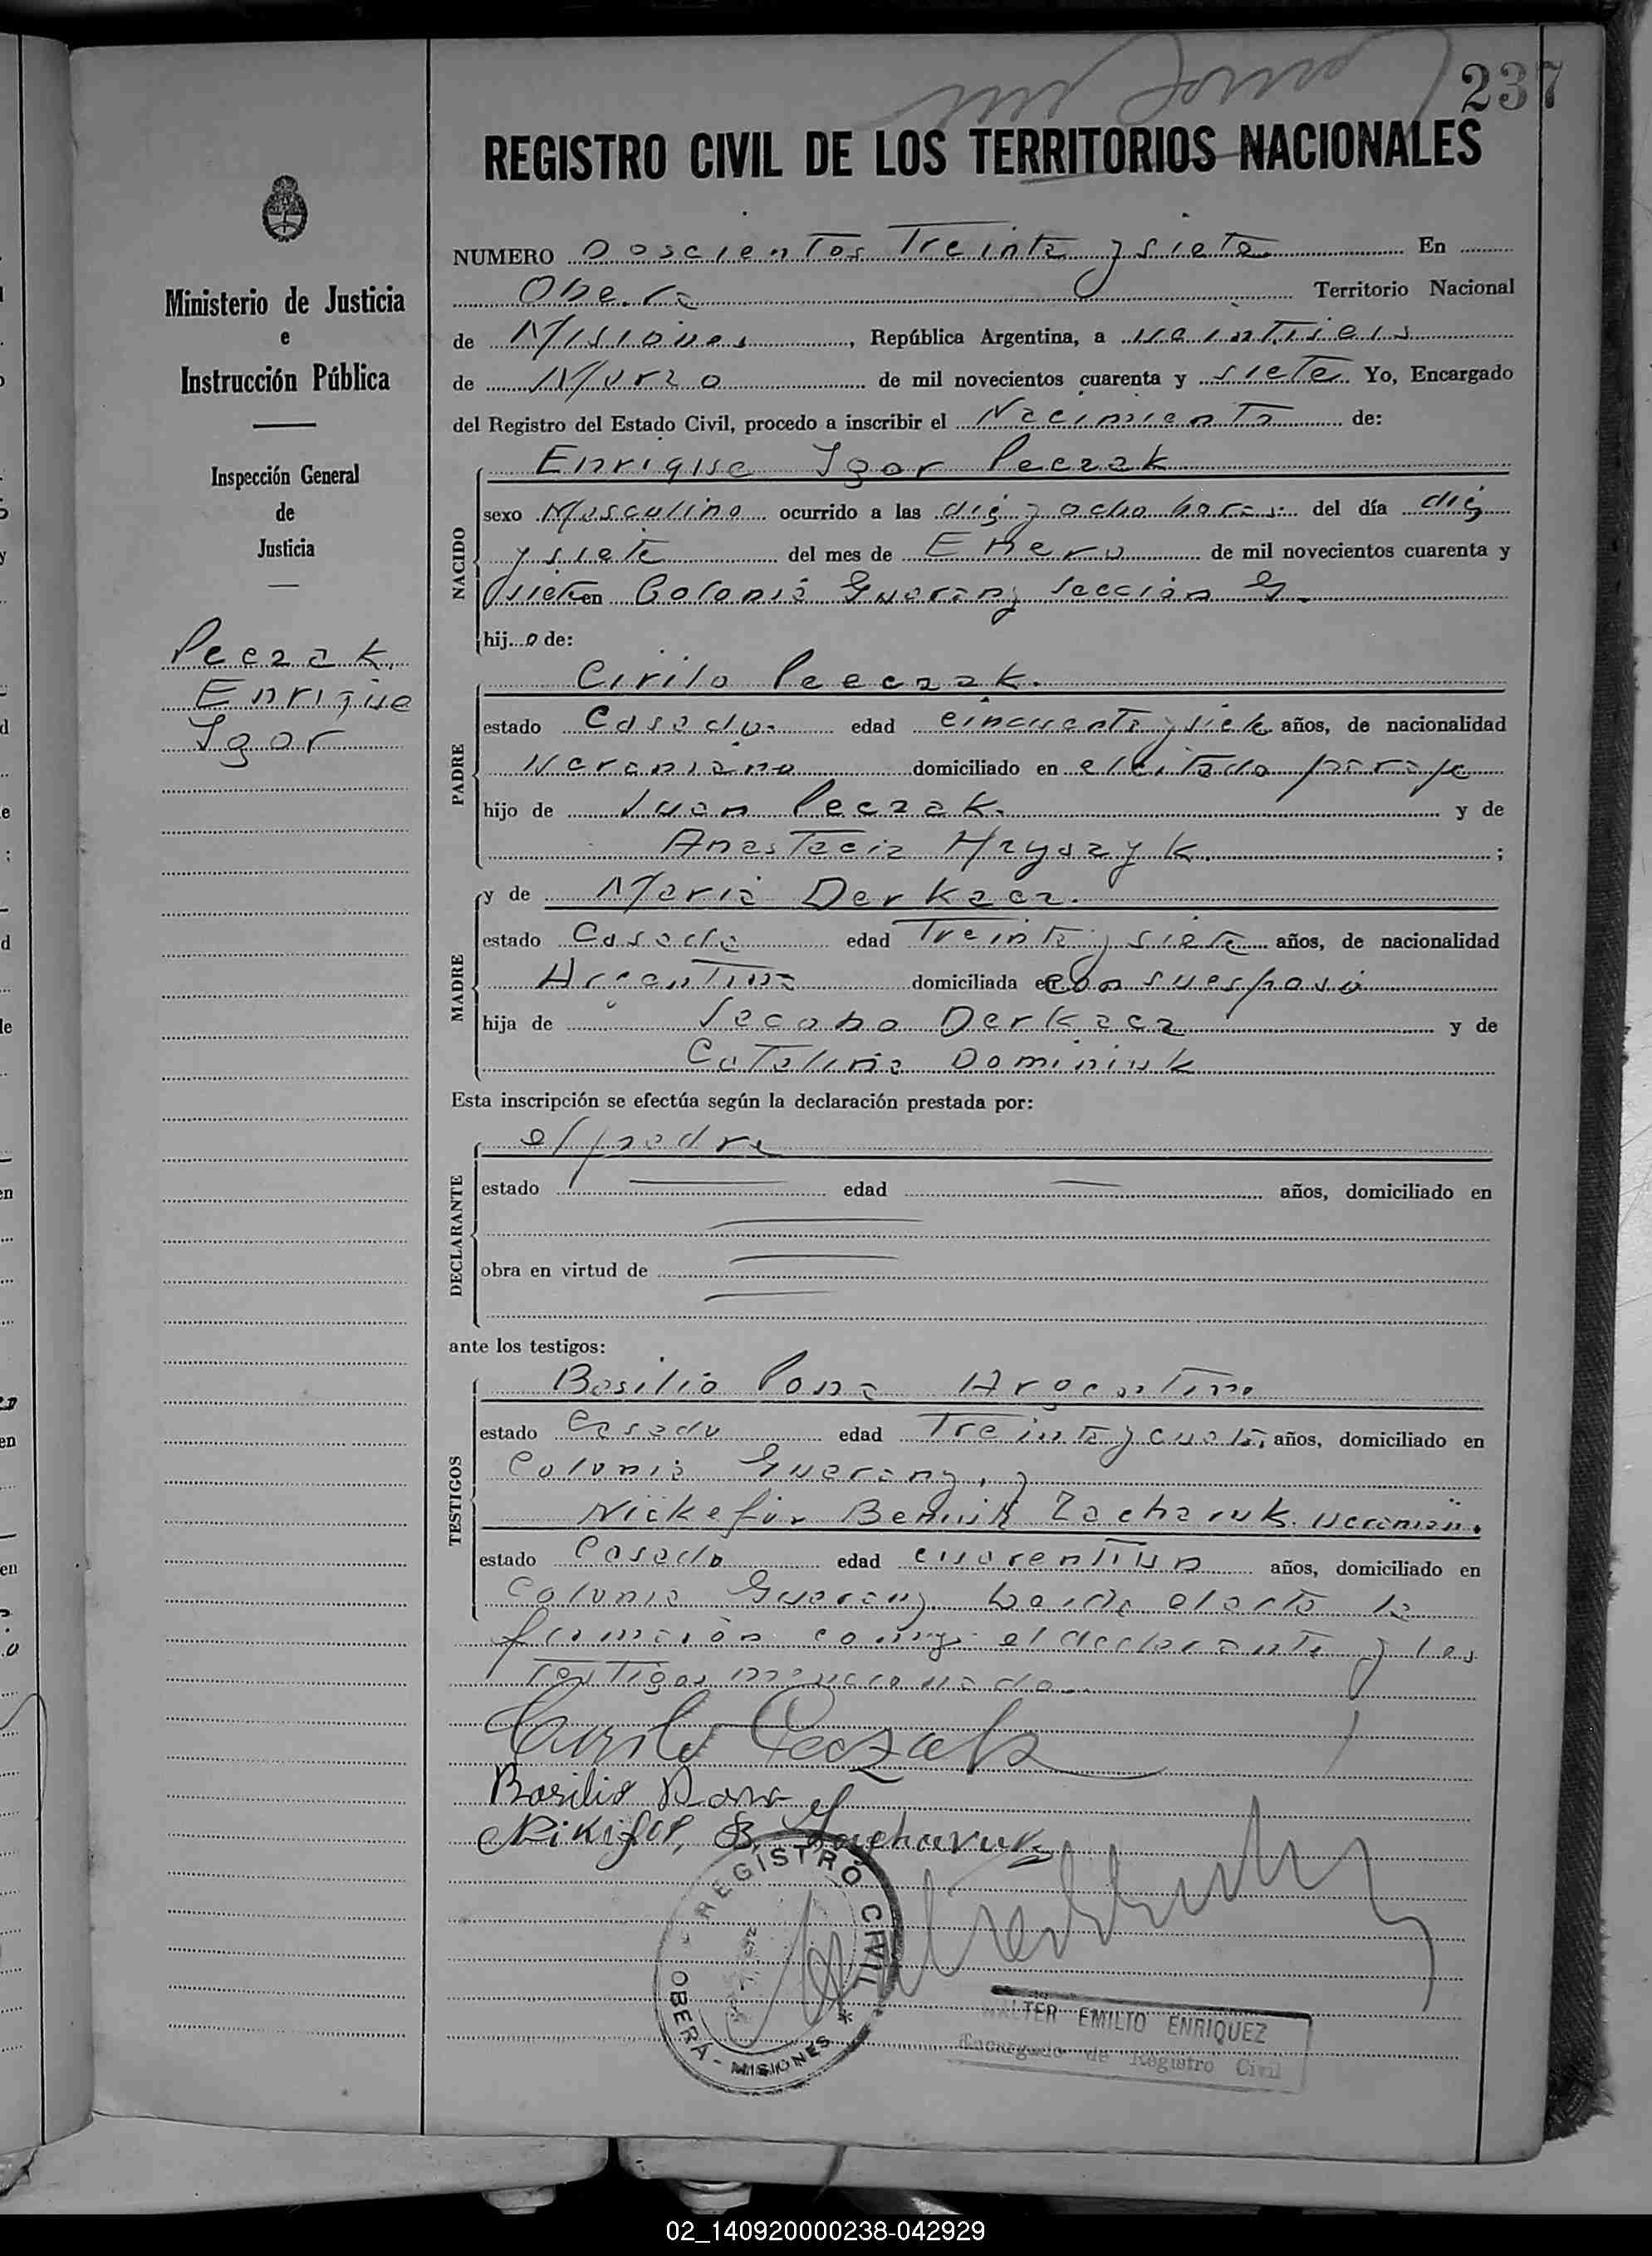 237
REGISTRO CIVIL DE LOS TERRITORIOS NACIONALES
Ministerio de Justicia
e
Instrucción Pública
Inspección General
de
Justicia
Peczak
Enrique
Igor
NUMERO Doscientos Treinta y siete En
Obera Territorio Nacional
de Misiones, República Argentina, a veintiseis
de Marzo de mil novecientos cuarenta y siete Yo, Encargado
del Registro del Estado Civil, procedo a inscribir el Nacimiento de:
NACIDO
Enrique Igor Peczak
sexo Masculino ocurrido a las diez y ocho horas del día diez
y siete del mes de Enero de mil novecientos cuarenta y
siete en Colonia Guarany Sección
hijo de:
PADRE
Cirilo Peeczak.
estado Casado edad cincuenta y siete años, de nacionalidad
Ucraniano domiciliado en el citado paraje
hijo de Juan Peczak. y de
Anastacia Hryszyk. ;
MADRE
y de Maria Derkacz.
estado Casada edad Treinta y siete años, de nacionalidad
Argentina domiciliada en con su esposo
hija de Jacobo Derkacz y de
Catalina Dominiuk
Esta inscripción se efectúa según la declaración prestada por:
DECLARANTE
el padre
estado edad años, domiciliado en
obra en virtud de
ante los testigos:
TESTIGOS
Basilio Pona Argentino
estado Casado edad Treinta y cuatro años, domiciliado en
Colonia Guarany, y
Nickefor Zacharuk. ucraniano.
estado Casado edad cuarentiun años, domiciliado en
Colonia Guarany. Leida el acta la
firmaron conmigo el declarante y los
testigos mencionados.
Cirilo Peczak
Basilio
Nikifor B. Zacharuk
REGISTRO CIVIL
OBERÁ - MISIONES
WALTER EMILIO ENRIQUEZ
Encargado de Registro Civil
02_140920000238-042929